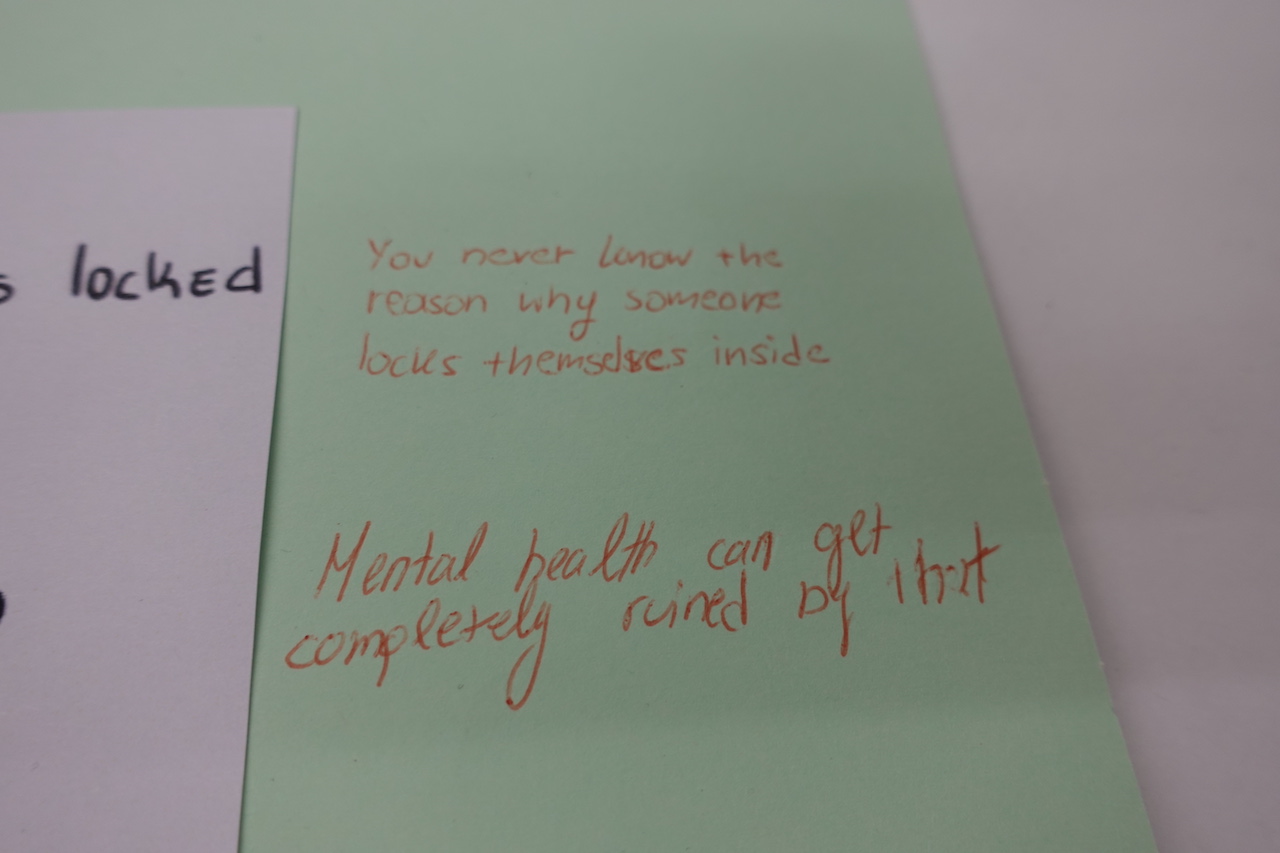 locked
You never know the
reason why someone
locks themselves inside
Mental health can get
completely ruined by that